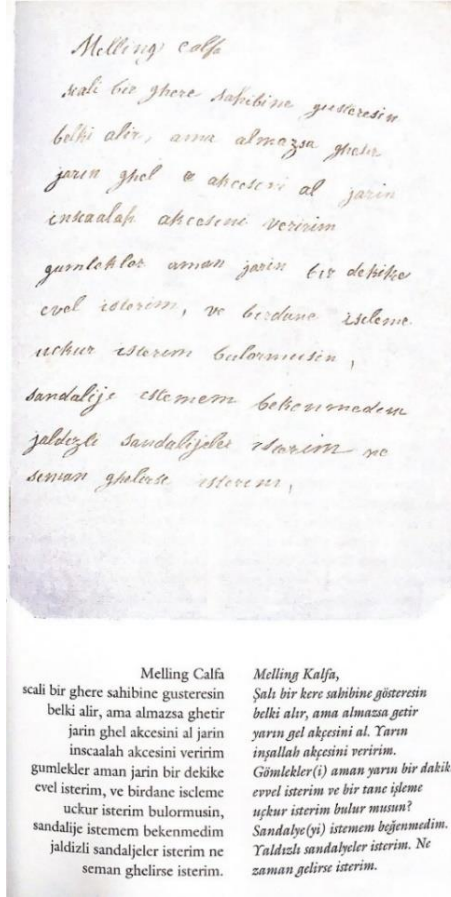 Melling Calfa
scali bir ghere sahibine gusteresin
belki alir, ama almazsa ghetir
jarin ghel e akcesini al jarin
inscaalah akcesini veririm
gumlekler aman jarin bir dekike
evel isterim, ve birdane iscleme
uckur isterim bulormusin,
sandalije istemem bekenmedem
jaldizli sandalijeler isterim ne
seman ghelirse isterim,
Melling Calfa
scali bir ghere sahibine gusteresin
belki alir, ama almazsa ghetir
jarin ghel akcesini al jarin
inscaalah akcesini veririm
gumlekler aman jarin bir dekike
evel isterim, ve birdane iscleme
uckur isterim bulormusin,
sandalije istemem bekenmedim
jaldizli sandaljeler isterim ne
seman ghelirse isterim.
Melling Kalfa,
Şalı bir kere sahibine gösteresin
belki alır, ama almazsa getir
yarın gel akçesini al. Yarın
inşallah akçesini veririm.
Gömlekler(i) aman yarın bir dakik
evvel isterim ve bir tane işleme
uçkur isterim bulur musun?
Sandalye(yi) istemem beğenmedim.
Yaldızlı sandalyeler isterim. Ne
zaman gelirse isterim.